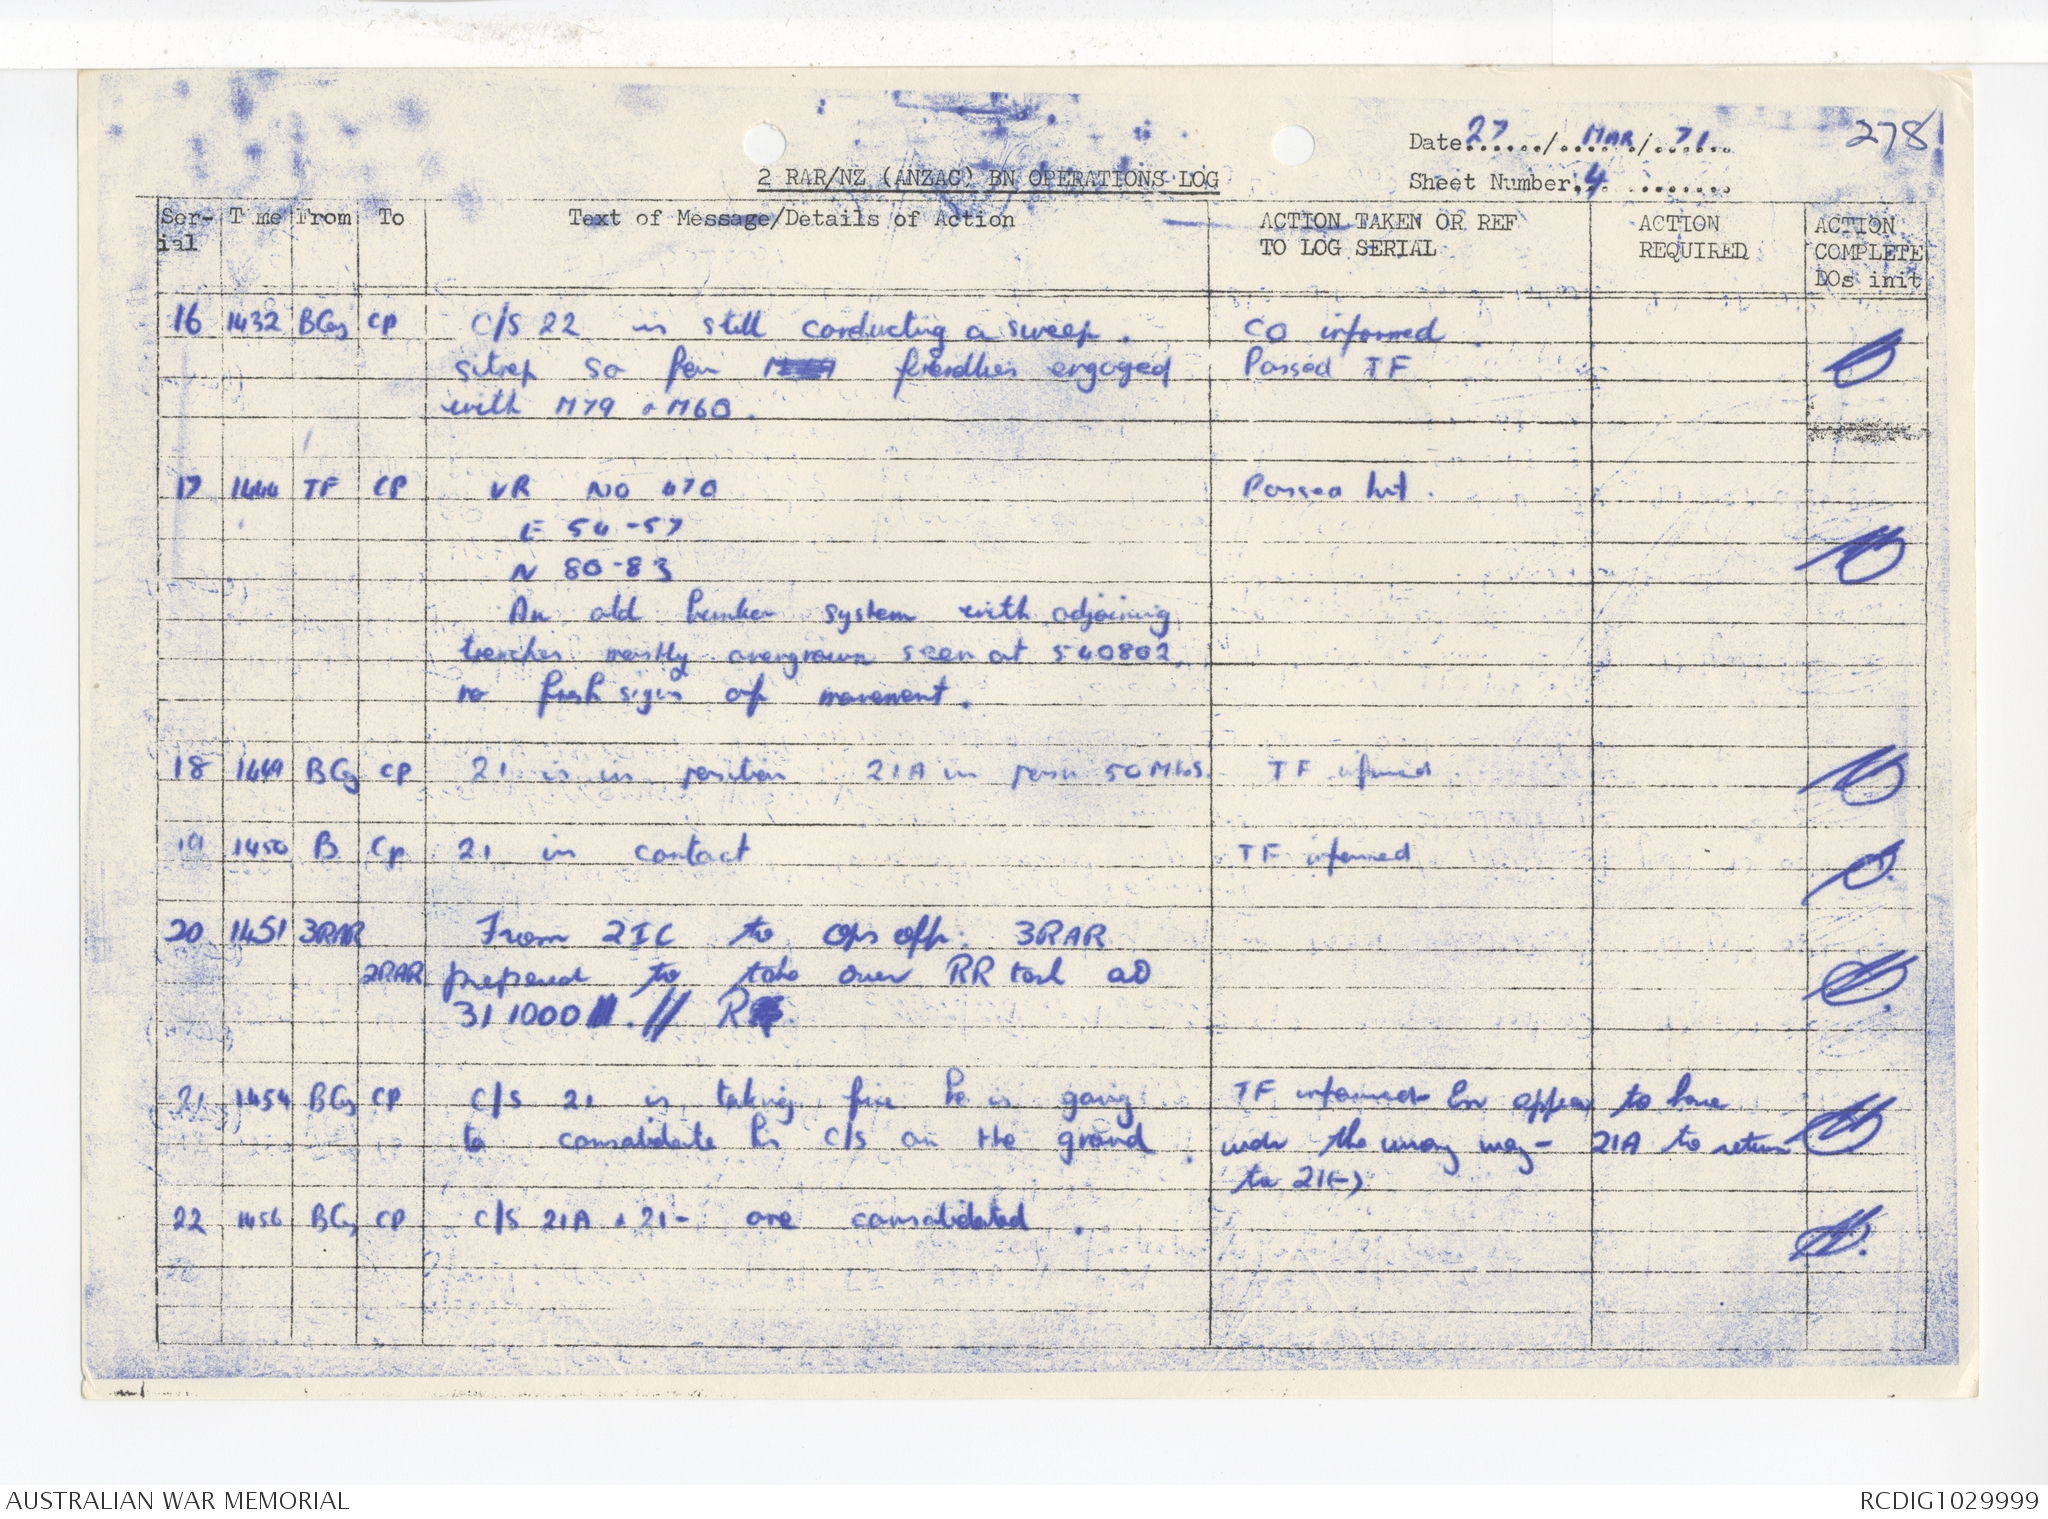 Date 27 / MAR / 71
278
2 RAR/NZ (ANZAC) BN OPERATIONS LOG
Sheet Number 4
Ser-ial Time From To Text of Message/Details of Action ACTION TAKEN OR REF TO LOG SERIAL ACTION REQUIRED ACTION COMPLETE DOs init
16 1432 BCoy CP C/S 22 is still conducting a sweep. CO informed
sitrep so far friendlies engaged Passed TF
with M79 + M60.
17 1444 TF CP VR NO 470 Passed Int.
E 54-57
N 80-83
An old bunker system with adjoining
trenches mostly overgrown seen at 540802.
no fresh signs of movement.
18 1449 BCoy CP 21 is in position 21A in posn 50 Mtrs. TF informed
19 1450 B CP 21 in contact TF informed
20 1451 3RAR From 2IC to Ops offr. 3RAR
2RAR prepared to take over RR task at
311000 //
21 1454 BCoy CP C/S 21 is taking fire he is going TF informed En appear to have
to consolidate his C/S on the ground. the wrong way - 21A to return
to 21(-)
22 1456 BCoy CP C/S 21A + 21- are consolidated.
AUSTRALIAN WAR MEMORIAL
RCDIG1029999